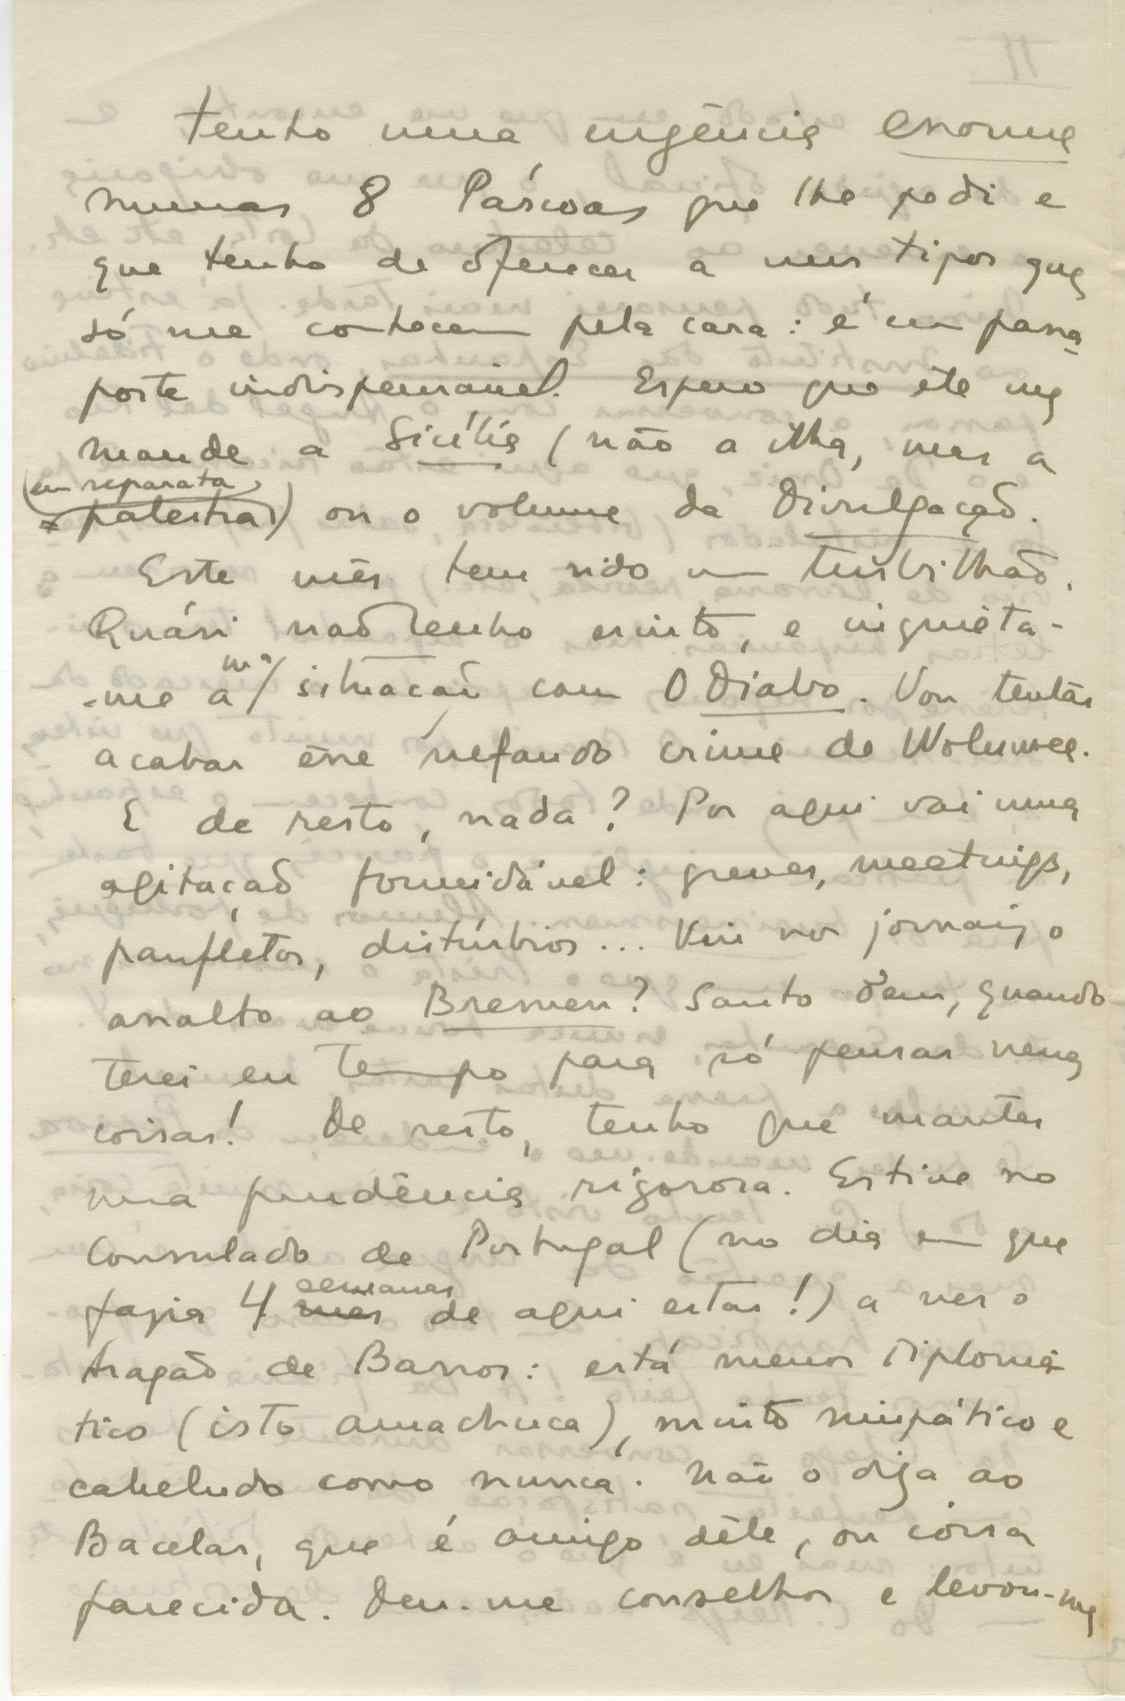 Tenho uma urgência enorme
numas 8 Páscoas que lhe pedi e
que tenho de oferecer a uns tipos que
só me conhecem pela cara: é um passa-
porte indispensável. Espero que êle me
mande a Sicília (não a ilha, mas a
(em separata,
palestra) ou o volume da Divulgação.
Este mês tem sido um turbilhão.
Quási não tenho escrito, e inquieta-
-me a mª/ situação com O Diabo. Vou tentar
acabar êsse nefando crime de
E de resto, nada? Por aqui vai uma
agitação formidável: greves, meetings,
panfletos, distúrbios... Viu nos jornais o
assalto ao Bremen? Santo Deus, quando
terei eu tempo para só pensar nessas
coisas! De resto, tenho que manter
uma prudência rigorosa. Estive no
Consulado de Portugal (no dia em que
fazia 4 semanas de aqui estar!) a ver o
Aragão de Barros: está menos diplomá-
tico (isto amachuca), muito simpático e
cabeludo como nunca. Não o diga ao
Bacelar, que é amigo dêle, ou coisa
parecida. Deu-me conselhos e levou-me